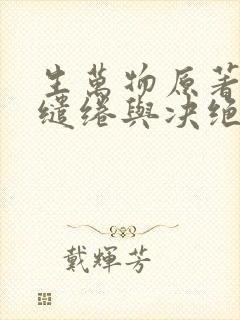 生萬物原著
繾綣與决绝
戴輝芳